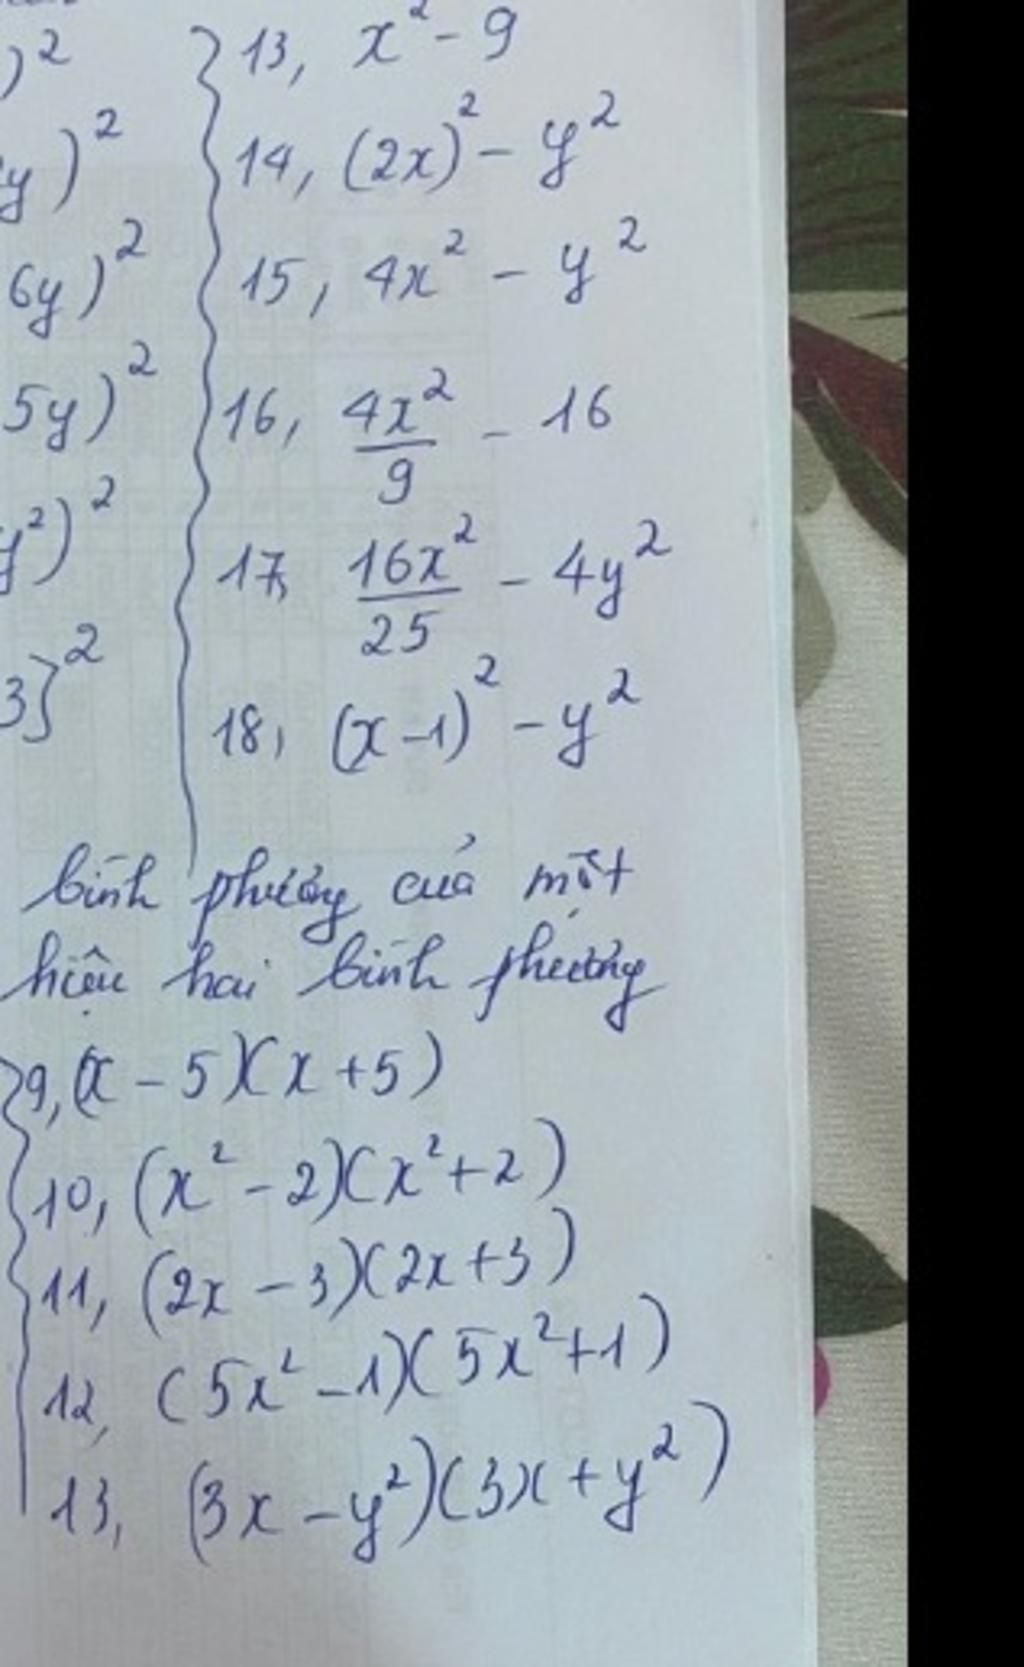 )² 13, x² - 9
y)² 14, (2x)² - y²
6y)² 15, 4x² - y²
5y)² 16, 4x²/9 - 16
y²)² 17, 16x²/25 - 4y²
3]² 18, (x-1)² - y²
bình phương của một
hiệu hai bình phương
9, (x - 5)(x + 5)
10, (x² - 2)(x² + 2)
11, (2x - 3)(2x + 3)
12, (5x² - 1)(5x² + 1)
13, (3x - y²)(3x + y²)